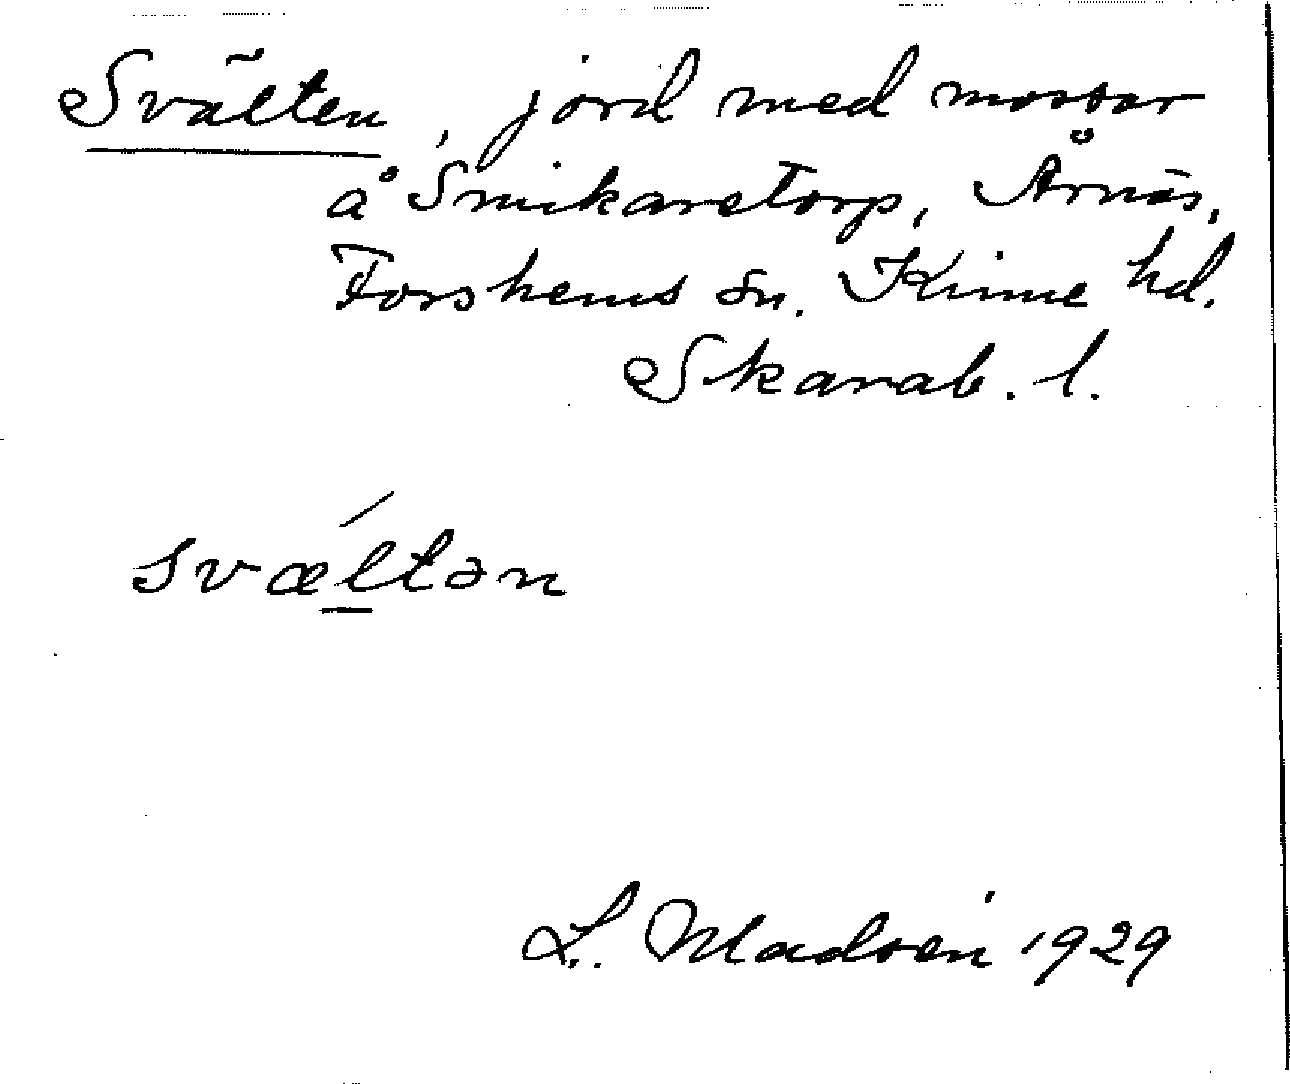 Svälten, jord med mossar
å Smikaretorp, Årnäs,
Forshems sn. Kinne hd.
Skarab. l.
svæltən
L. Modéen 1929